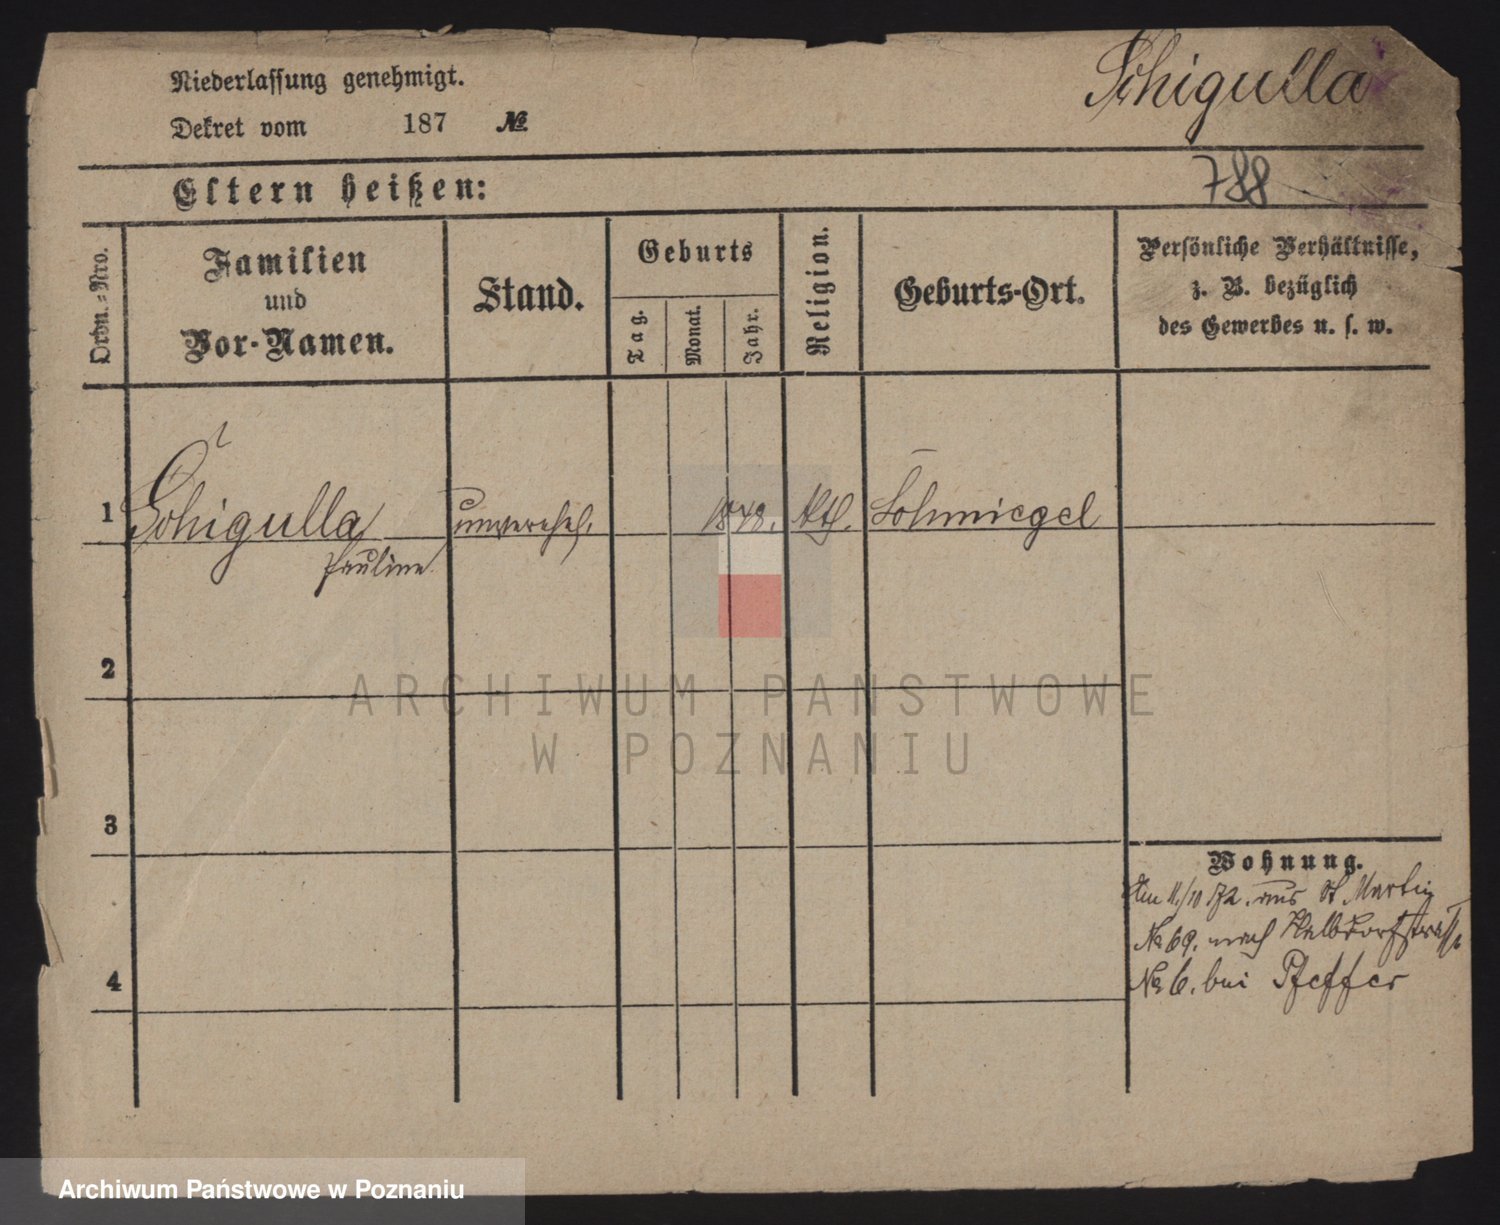 Niederlassung genehmigt.
Schigulla
Dekret vom 187 №
Eltern heißen:
788
Ordn.-Nro.
Familien
und
Vor-Namen.
Stand.
Geburts
Tag.
Monat.
Jahr.
Religion.
Geburts-Ort.
Persönliche Verhältnisse,
z. B. bezüglich
des Gewerbes u. s. w.
1 Schigulla unverehel. 1848. kth. Schmiegel
Pauline
2
3
4
Wohnung.
Am 11/10 72. aus St Martin
№ 69. nach Halbdorfstrasse
№ 6. bei Pfeffer
ARCHIWUM PAŃSTWOWE
W POZNANIU
Archiwum Państwowe w Poznaniu